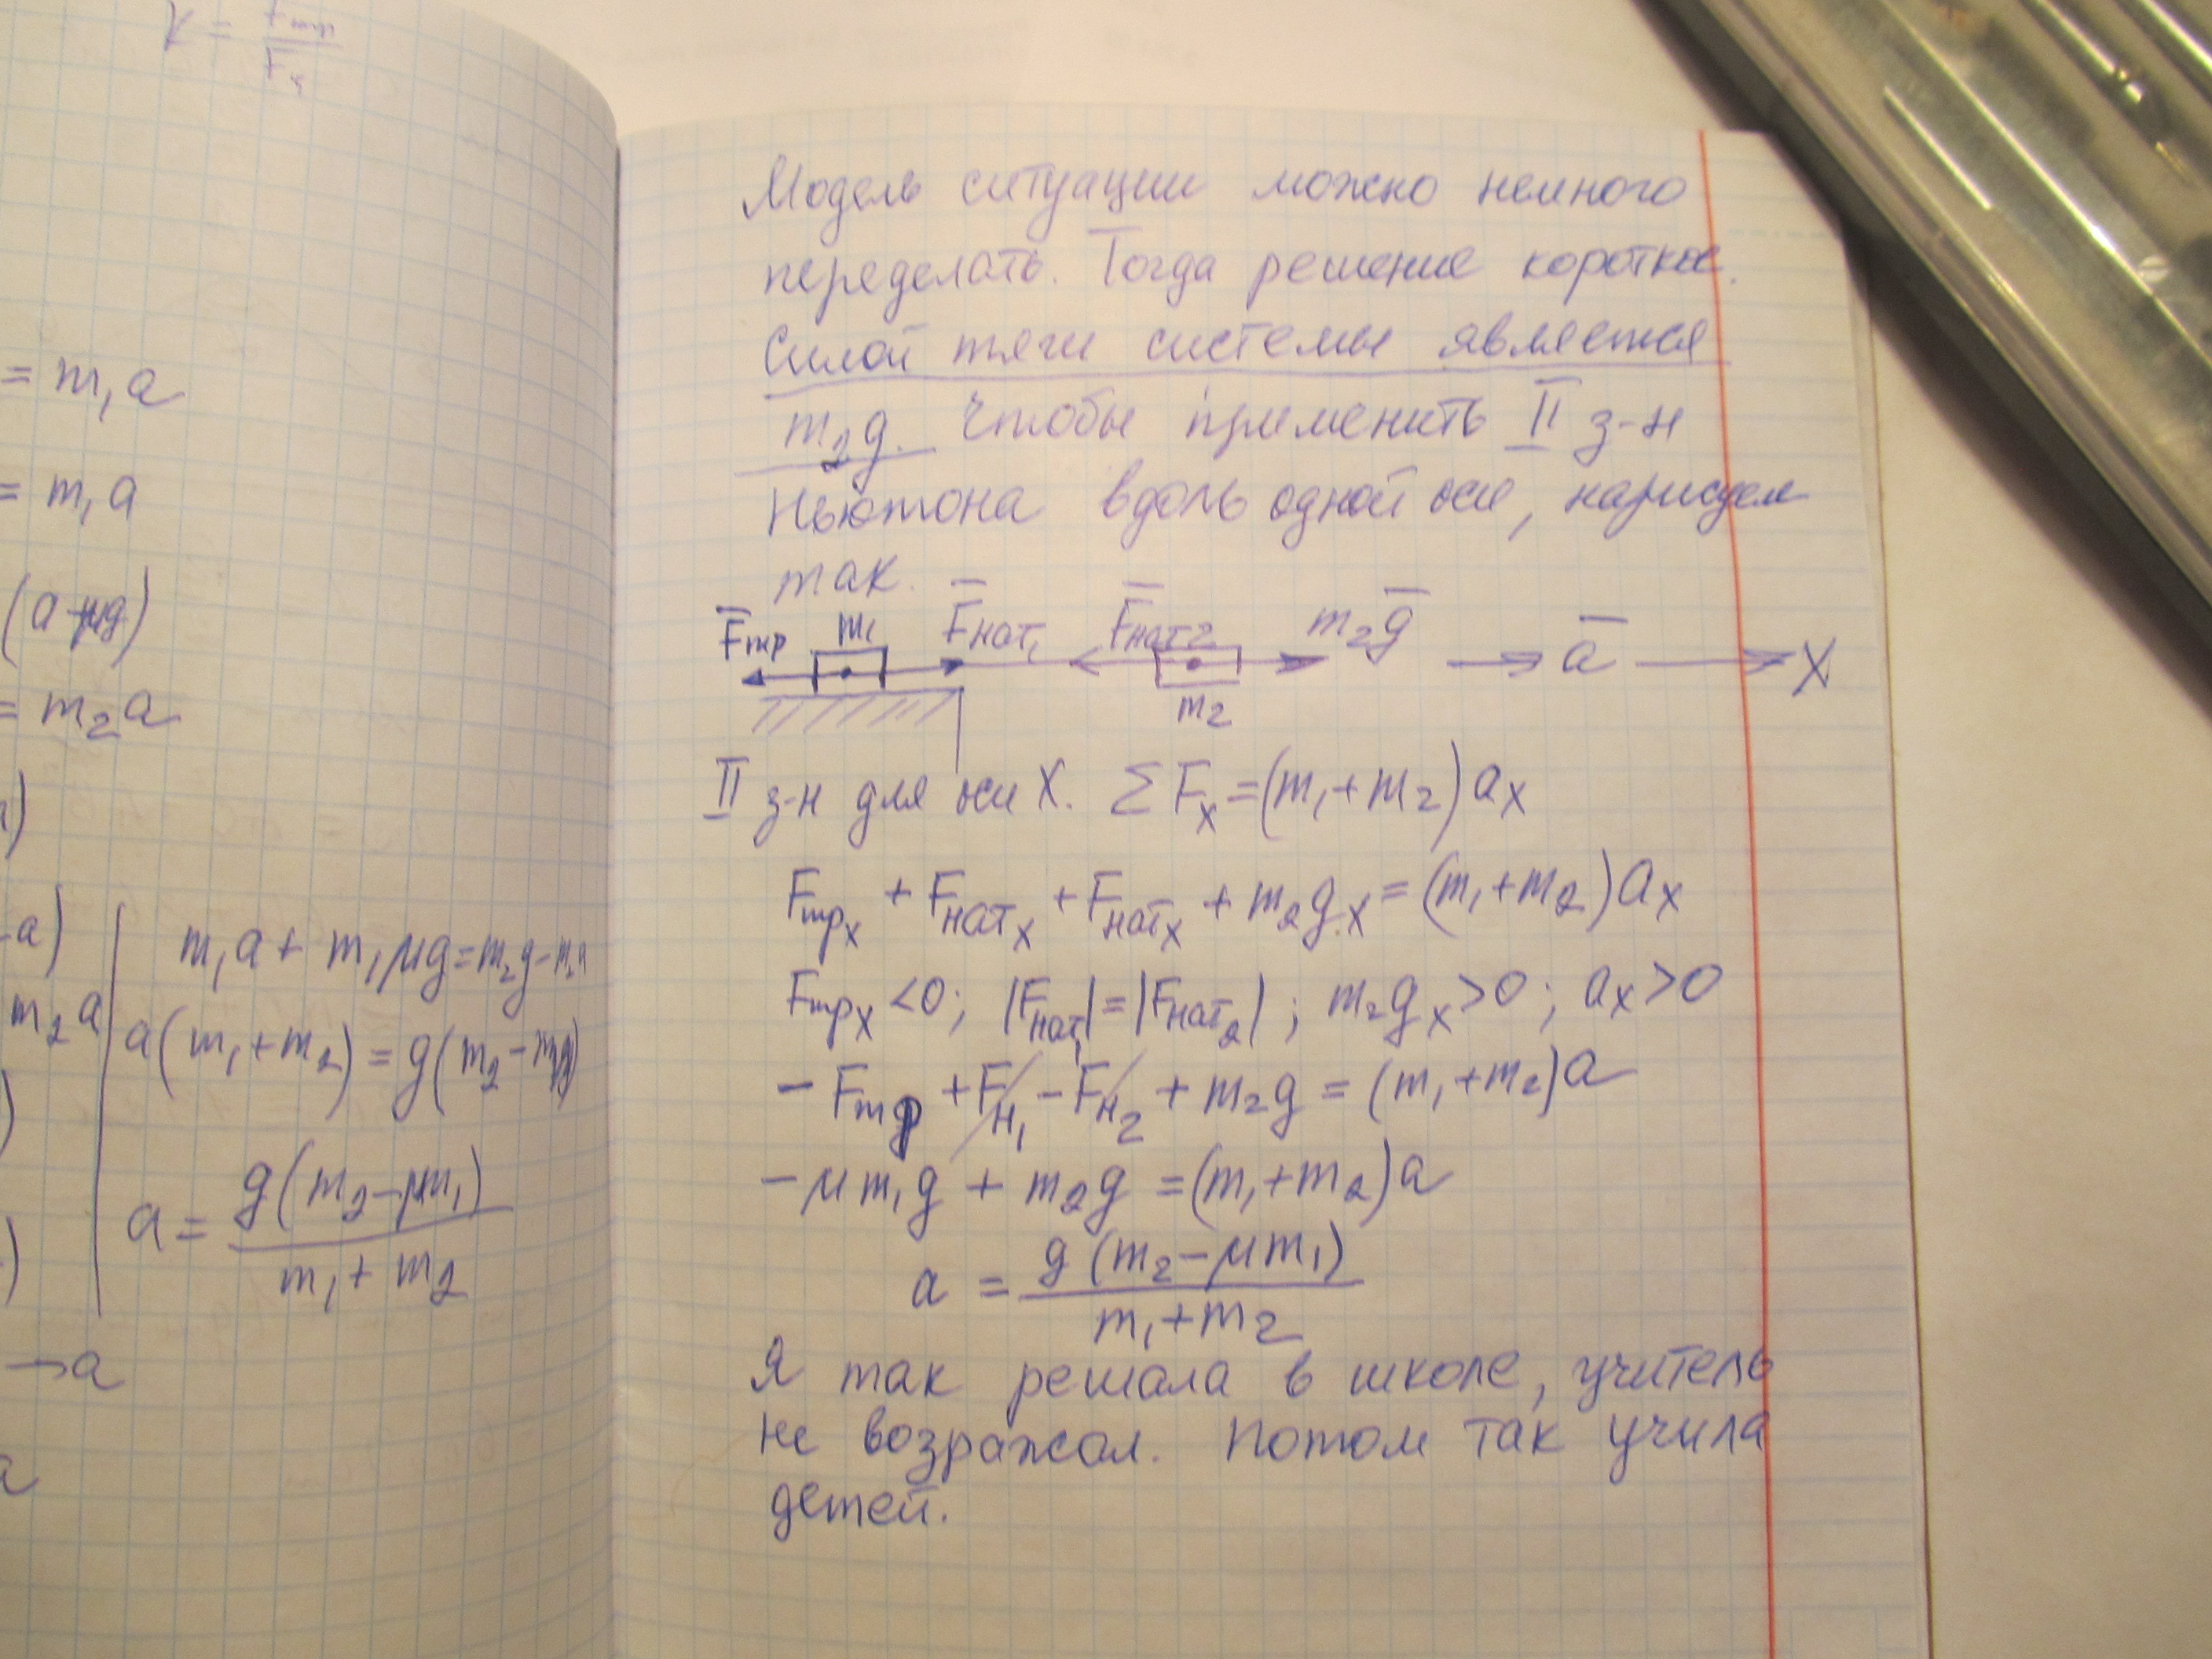 = m₁a
= m₁a
(a+μg)
= m₂a
-a)
m₂a
m₁a + m₁μg = m₂g - m₂a
a(m₁+m₂) = g(m₂-m₁μ)
a = g(m₂-μm₁) / m₁+m₂
→a
Модель ситуации можно немного
переделать. Тогда решение короткое.
Силой тяги системы является
m₂g. Чтобы применить II з-н
Ньютона вдоль одной оси, нарисуем
так.
F̅тр m₁ F̅нат₁ F̅нат2 m₂g̅ a̅ X
m₂
II з-н для оси X. ΣFₓ=(m₁+m₂)aₓ
Fтрₓ + Fнатₓ + Fнатₓ + m₂gₓ = (m₁+m₂)aₓ
Fтрₓ <0; |Fнат₁|=|Fнат₂|; m₂gₓ>0; aₓ>0
- Fтр + Fн₁ - Fн₂ + m₂g = (m₁+m₂)a
- μm₁g + m₂g = (m₁+m₂)a
a = g(m₂-μm₁) / m₁+m₂
Я так решала в школе, учитель
не возражал. Потом так учила
детей.